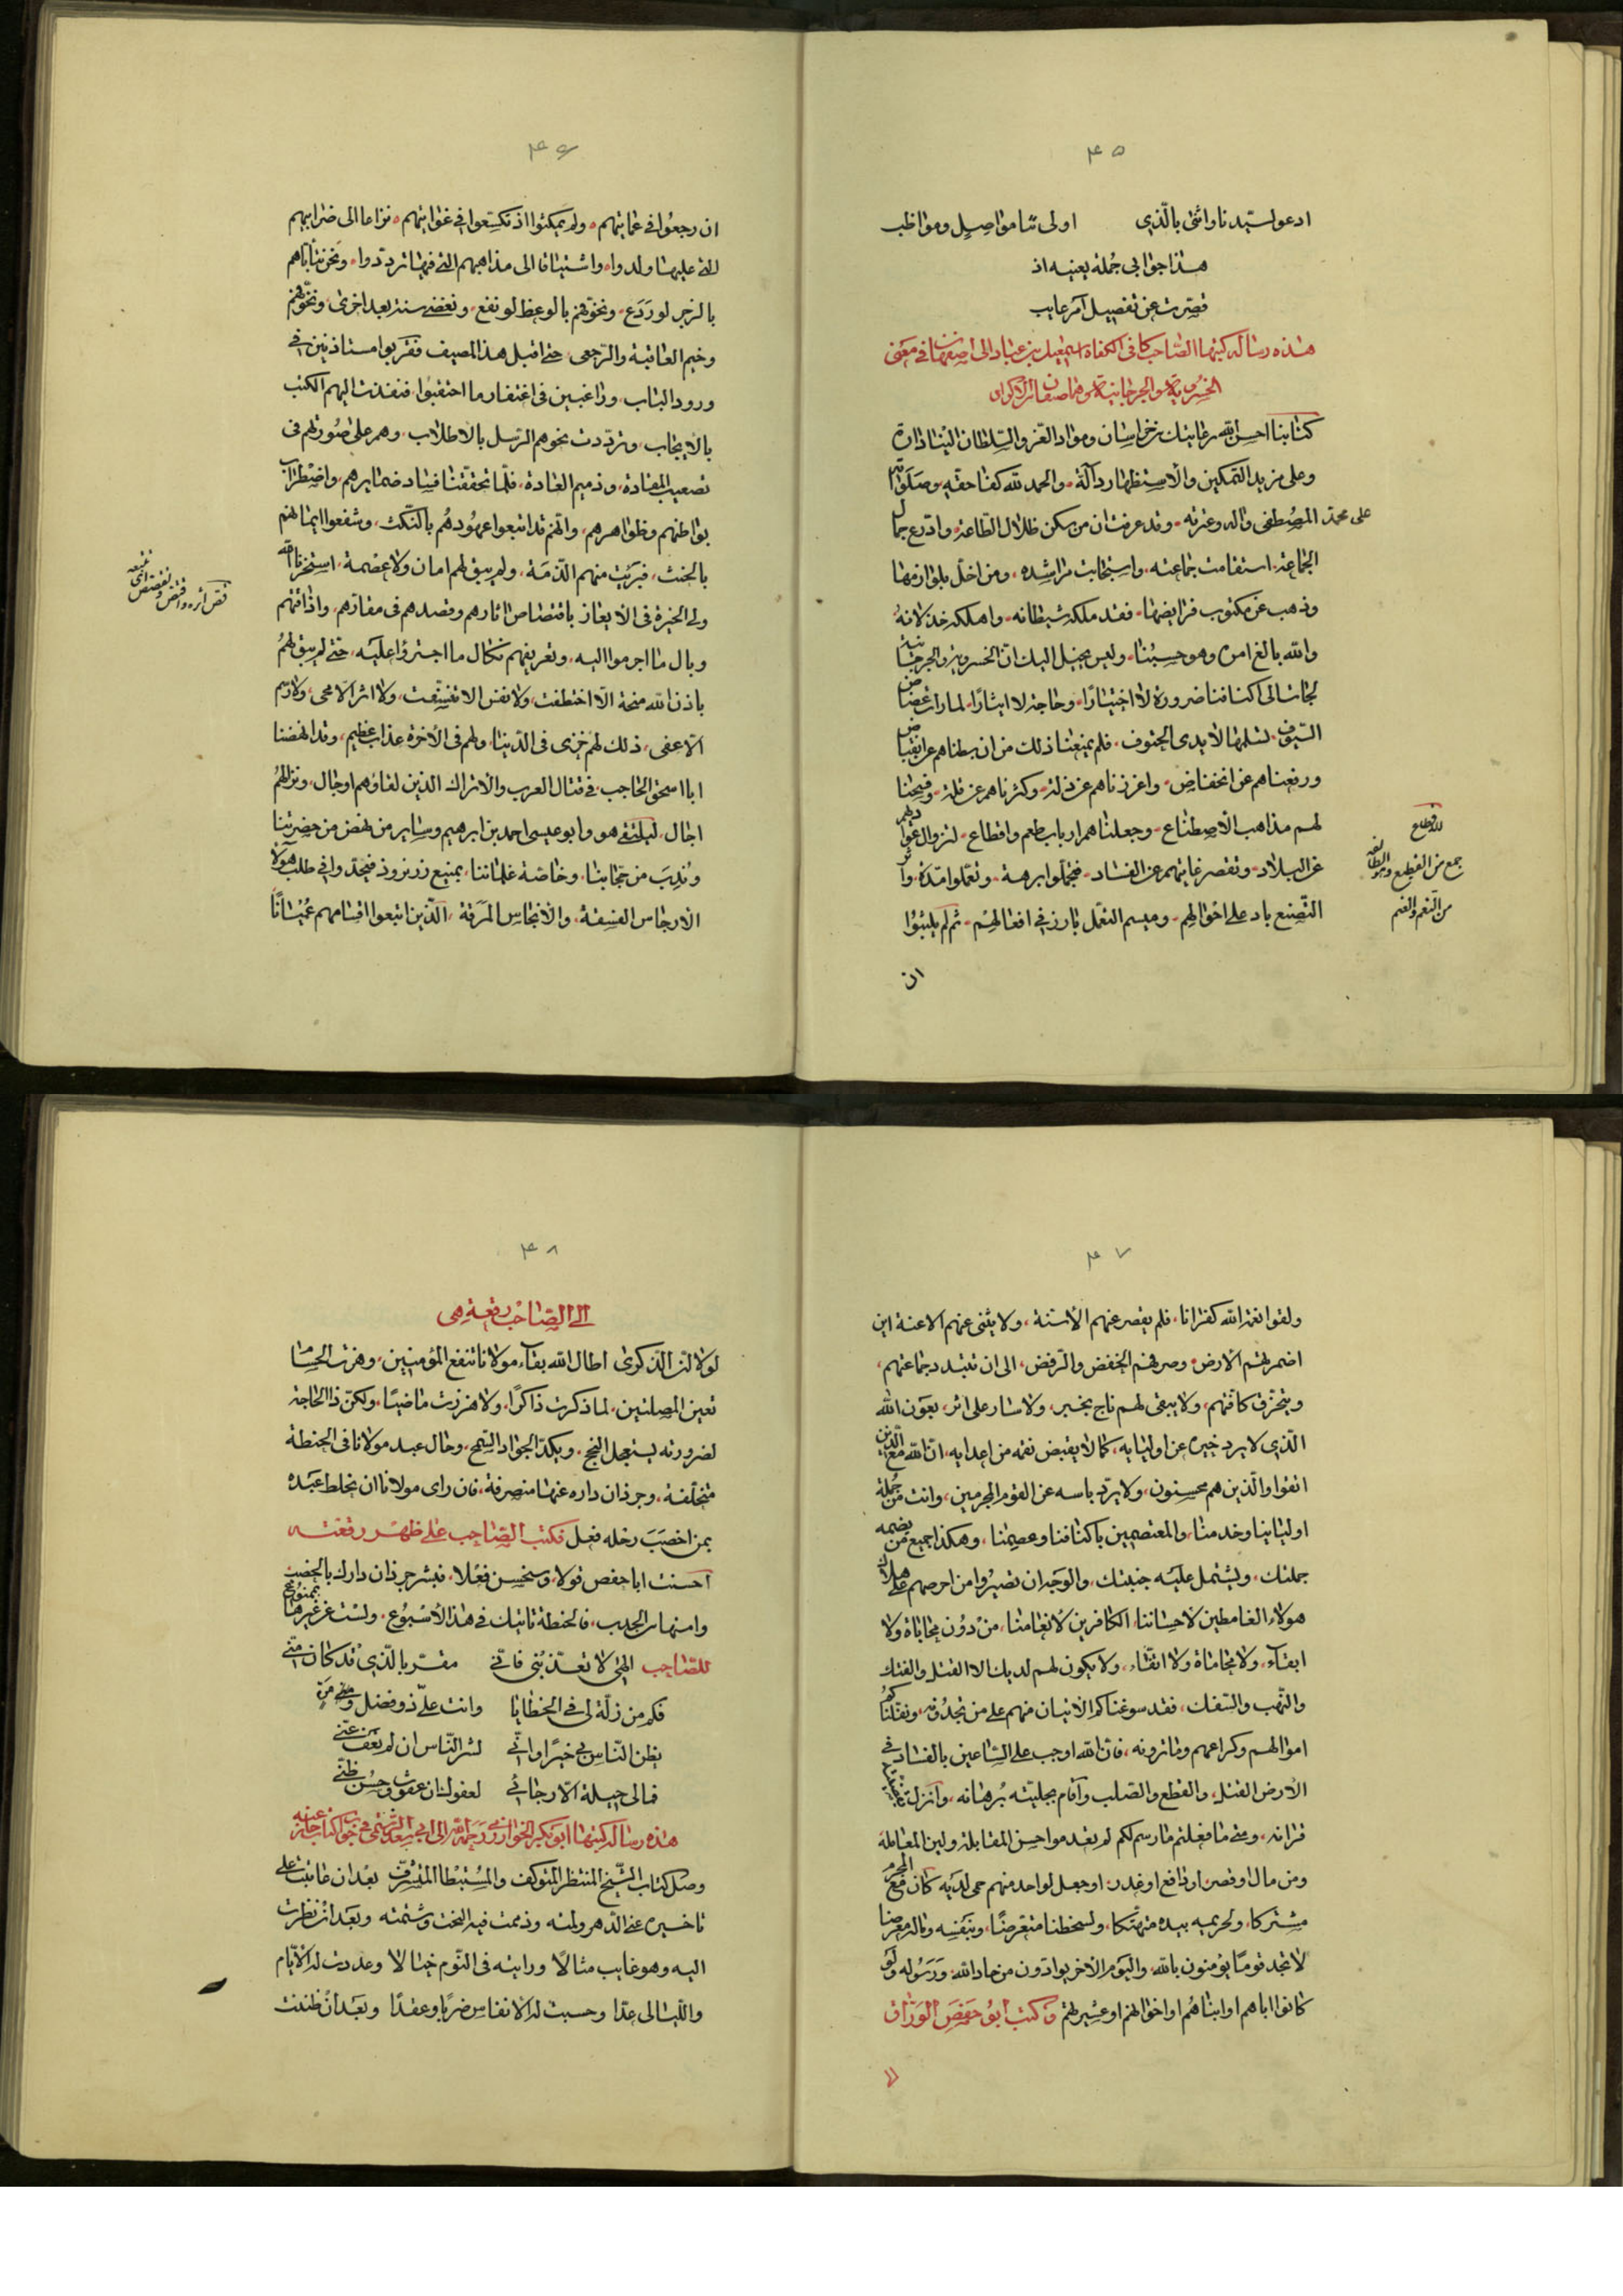 ٤٥
ادعو لسيدنا واثنى بالّذى اولى ثنا مواصِيلٍ ومواظب
هذا جوابى جُملة بعينه اذ
قصّرت عن تفصيل آمر عايب
هذه رسالة كتبها الصّاحب كافى الكفاة اسمعيل بن عبّاد الى اصفهان فى معنى
الخسروية والجرجانية وهما صنفان من الاكراد
كتابنا احسن الله رعايتك من خراسان ومواد العز والسّلطان الينا دارّة
وعلى مزيد التمكين والاستظهار دالّة والحمد لله كفاء حقّه وصلواته
على محمّد المصطفى واله وعترته وقد عرفت ان من سكن ظلال الطّاعة وادّرع جمال
الجماعة استقامت جماعته واستجابت مراشده ومن اخلّ بلوازمها
وذهب عن مكتوب فرايضها فقد ملكه شيطانه واهلكه خذلانه
والله بالغ امره وهو حسبنا وليس يخيل اليك انّ الخسروية والجرجانية
لجات الى اكنافنا ضرورة لا اختيارًا وحاجة لا ايثارًا لما رات
السّيوف لسلمها لايدى الحتوف فلم يمنعنا ذلك من ان بسطناهم عن انقباض
ورفعناهم عن انخفاض واعززناهم عن ذلّة وكثرناهم عن قلّة وفتحنا
لهم مذاهب الاصطناع وجعلناهم ارباب طعم واقطاع لتزول
عن البلاد وتقصر غاياتهم عن الفساد فتجمّلوا برهة وتعمّلوا مدّة
التّصنع باد على احوالهم وميسم التعمّل بارز فى افعالهم ثم لم يلبثوا
ان
الاقطاع
جمع من القطيع والطائفة
من النعم والغنم
٤٦
ان رجعوا فى عمايتهم ولم يمكثوا اذ تكسّعوا فى غوايتهم نزاعا الى ضرايبهم
الّتى عليها ولدوا واشتياقا الى مذاهبهم الّتى فيها تردّدوا ونحن نتاناهم
بالزجر لو رَدَع ونخوّفهم بالوعظ لو نفع ونغضى سنة بعد اخرى ونخوّفهم
وخيم العاقبة والرّجعى حتى اقبل هذا المصيف فقربوا مستاذنين فى
ورود الباب وراغبين فى اغتفار ما احتقبوا فنفذت اليهم الكتب
بالايجاب وتردّدت نحوهم الرّسل بالاطلاب وهم على صُورتهم فى
تصعيب المقادة وذميم العادة فلمّا تحققنا فساد ضمايرهم واضطراب
بواطنهم وظواهرهم وانّهم قد اتبعوا عهودهُم بالنّكث وشفعوا ايمانهم
بالحنث فبرئت منهم الذّمة ولم يبق لهم امان ولا عصمة استخرنا الله
ولى الخيرة فى الايعاز باقتصاص اثارهم وقصدهم فى مقارّهم واذاقتهم
وبال ما اجرموا اليه وتعريفهم نكال ما اجترؤا عليه حتى لم يبق لهُم
باذن الله منحة الّا اختطفت ولا نفس الا نسفت ولا اثر الا محى ولا رسم
الّا عفى ذلك لهم خزى فى الدّنيا ولهم فى الاخرة عذاب عظيم وقد انهضنا
ابا اسحق الحاجب فى قتال العرب والاتراك الذين لقاؤهم اوجال ونزالهُم
اجال ليلتقى هو وابو عيسى احمد بن ابرهيم وساير من نهض من حضرتنا
ونُدِبَ من حجّابنا وخاصّة غلماننا بمنبع زرنروذ فيجدّوا فى طلب هؤلا
الارجاس الفسقة والانجاس المرقة الّذين اتبعوا اقسامهم
قص اثره واقتص وتقصص اى تتبعه
٤٧
ولقوا نعم الله كفرانا فلم يقصر عنهم الاسنة ولا يثنى عنهم الاعنة اين
اضمرتهم الارض وصرفهم الخفض والرّفض الى ان تتبدد جماعتهم
ويتحرّق كافتهم ولا يبقى لهم ناج بخبر ولا سار على اثر بعون الله
الّذى لا يرد خيره عن اوليايه كما لا يقبض نقمه من اعدايه انّ الله مع الّذين
اتقوا والّذين هم محسنون ولا يردّ باسه عن القوم المجرمين وانت من جُملة
اوليائنا وخدمنا والمعتصمين باكنافنا وعصمنا وهكذا جميع من يضمه
جملتك ويشتمل عليه جنبتك والوجه ان تصيرُوا من احرصهم على هلاك
هولاء الغامطين لاحساننا الكافرين لانعامنا من دون محاباة ولا
ابقاء ولا محاماة ولا اتقاء ولا يكون لهم لديك الا القتل والفتك
والنّهب والسّفك فقد سوغناكم الاتيان منهم على من تجدُونه ونفّلناكم
اموالهم وكراعهم وما ترونه فانّ الله اوجب على السّاعين بالفساد فى
الارض القتل والقطع والصّلب واقام بجليّته بُرهانه وانزل
قرانه ومتى ما فعلتم ما رسم لكم لم يعدموا حسن المقابلة ولين المعاملة
ومن مال او قصر او دافع او غدر او جعل لواحد منهم حمى لديه كان مع المجرم
مشتركا ولحريمه بيده منهتكا ولسخطنا متعرضًا وبنفسه وماله معرضا
لا تجد قومًا يؤمنون بالله واليوم الاخر يوادّون من حادّ الله ورَسُوله ولو
كانوا اباهم او ابناهُم او اخوانهم او عشيرتهم وكتب ابُو حَفصَ الوَرّاق
٤٨
الى الصّاحب رقعة هى
لولا انّ الذّكرى اطال الله بقاء مولانا تنفع المؤمنين وهزة الحسام
تعين المصلتين لما ذكرت ذاكرًا ولا هززت ماضيًا ولكنّ ذا الحاجة
لضرورته يستعجل النجح ويكدّ الجواد السّمح وحال عبد مولانا فى الحنطة
متخلّفة وجرذان داره عنها منصرفة فان راى مولانا ان يخلط عبَده
بمن اخصَبَ رحله فعل فكتب الصّاحب على ظهر رقعته
احسنت ابا حفص قولا وسنحسن فعلا فبشر جرذان دارك بالخصب
وامنها من الجدب فالحنطة تاتيك فى هذا الاسبُوع ولست عن غيرها بممنوع
للصّاحب الهى لا تعذّبنى فانّى مقرّ بالّذى قد كان منّى
فكم من زلّة لى فى الخطايا وانت علىّ ذو فضل ومنّ
يظن النّاس بى خيرًا وانّى لشرّ النّاس ان لم تعف عنّى
فمالى حيلة الّا رجائى لعفوك ان عفوت وحُسن ظنّى
هذه رسالة كتبها ابو بكر الخوارزمى رحمه الله الى ابى سعد فى جواب كتاب جاءه عنه
وصل كتاب الشّيخ المنتظر المتوكف والمُستبطا المتشرّف بعد ان عاتبت على
تاخيره عنّى الدّهر ولمته وذممت فيه البخت وشتمته وبعد ان نظرت
اليه وهو غايب مثالًا ورايته فى النّوم خيالا وعددت له الايّام
واللّيالى عدّا وحسبت له الانفاس ضربًا وعقدًا وبعد ان ظننت